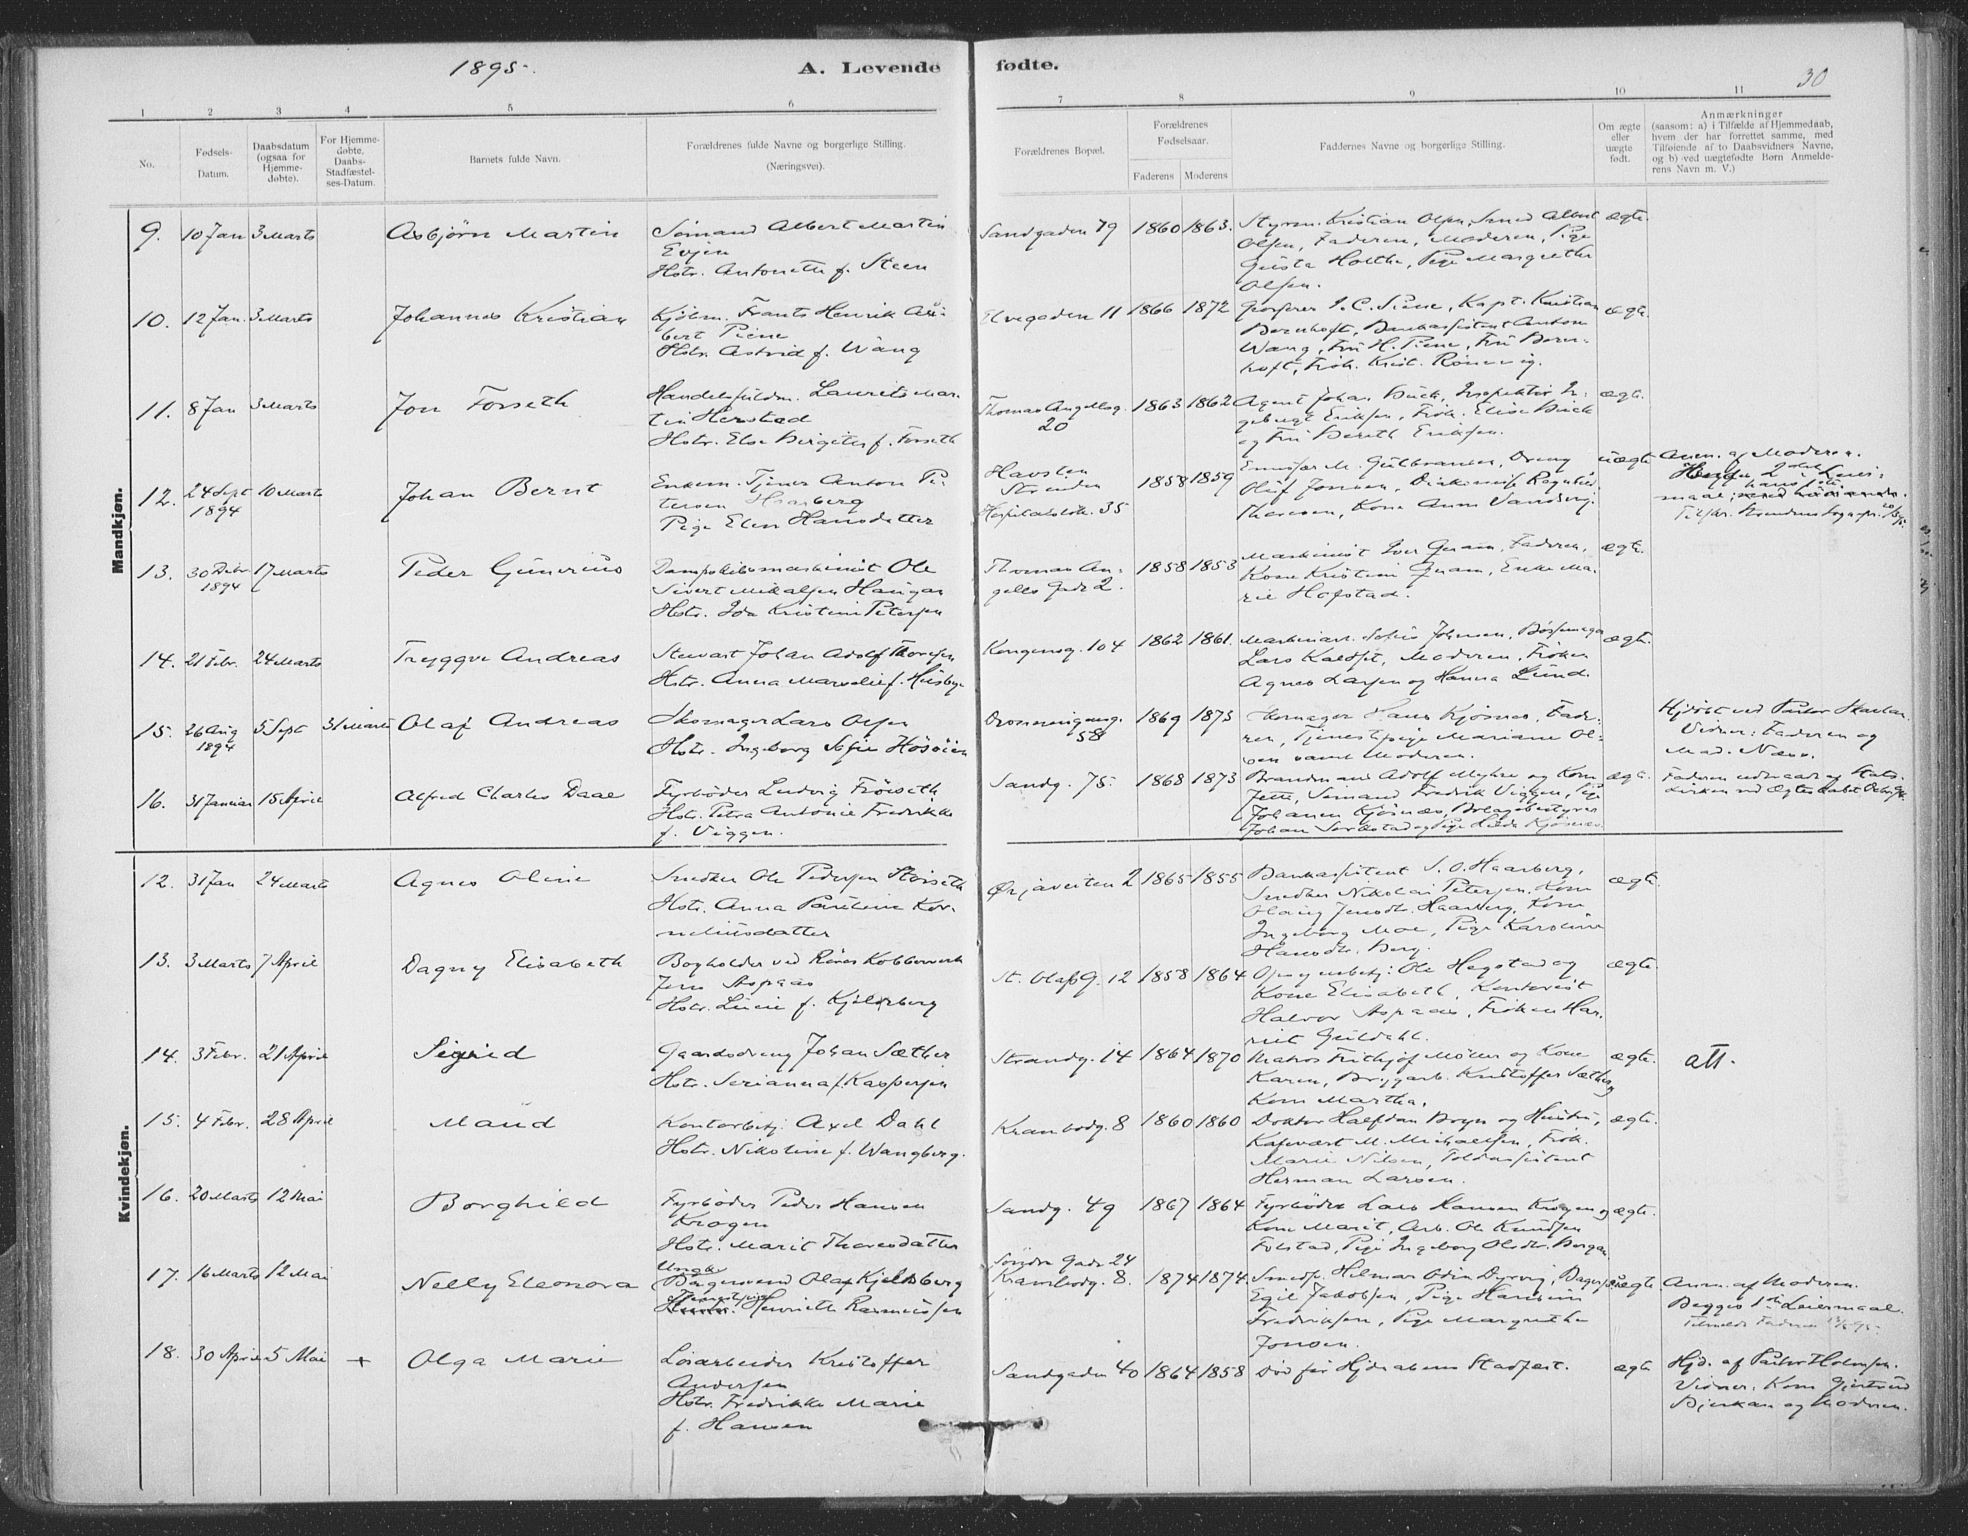 1895.
A. Levende
fødte.
30
1
2
3
4
5
6
7
8
9
10
11
No.
Fødsels-
Datum.
Daabsdatum
(ogsaa for
Hjemme-
døbte).
For Hjemme-
døbte,
Daabs-
Stadfæstel-
ses-Datum.
Barnets fulde Navn.
Forældrenes fulde Navne og borgerlige Stilling.
(Næringsvei).
Forældrenes Bopæl.
Forældrenes
Fødselsaar.
Faderens
Moderens
Faddernes Navne og borgerlige Stilling.
Om ægte
eller
uægte
født.
Anmærkninger
(saasom: a) i Tilfælde af Hjemmedaab,
hvem der har forrettet samme, med
Tilføiende af to Daabsvidners Navne,
og b) ved uægtefødte Børn Anmelde-
rens Navn m. V.)
Mandkjøn.
9. 10 Jan 3 Marts Asbjørn Martin Sømand Albert Martin
Evjen
Hstr. Antonette f. Steen
Sandgaden 79 1860 1863. Styrm. Kristian Olsen, Smed Albert ægte
Olsen, Faderen, Moderen, Pige
Gusta Holthe, Pige Margrethe
Olsen.
10. 12 Jan. 3 Marts Johannes Kristian Kjøbm. Frants Henrik Al-
bert Piene
Hstr. Astrid f. Wang
Elvegaden 11 1866 1872 Grosserer I. C. Piene, Kapt. Kristian ægte.
Bernhoft, Bankassistent Anton
Wang, Fru H. Piene, Fru Bern-
hoft, Frøk. Krist. Rønnevig.
11. 8 Jan 3 Marts Jon Forseth Handelsfuldm. Laurits Mar-
tin Herstad
Hstr. Else Birgitte f. Forseth
Thomas Angellsg.
20
1863 1862 Agent Johan Buck, Inspektør In- ægte.
gebrigt Eriksen, Frøk. Elise Buck
og Fru Bereth Eriksen.
12. 24 Sept 10 Marts Johan Bernt Enkem. Tjener Anton Pe-
1894
tersen Haarberg
Pige Elen Hansdatter
Havsten
Strinden
Hospitalsløk. 35
1858 1859 M. Gulbransen, Dreng uægte
Oluf Jonsen,
Theresen, Kone Anna Sandberg.
Anm. af Moderen.
Hendes 2det Leier-
maal, hans 1ste.
13. 30 Debr. 17 Marts Peder Gunerius Dampskibsmaskinist Ole
1894
Sivert Mikalsen Haugan
Hstr. Ida Kristine Petersen
Thomas An-
gells Gade 2.
1858 1853 Maskinist Iver Gram, Faderen, ægte.
Kone Kristine Gram, Enke Ma-
rie Hofstad.
14. 21 Febr. 24 Marts Tryggve Andreas Stewart Johan Adolf Thoresen
Hstr. Anna Marselie f. Husby
Kongensg. 104 1862 1861. Johnsen, Børsemager ægte.
Lars Kaldset, Moderen, Frøken
Agnes Larsen og Hanna Lund.
15. 26 Aug 5 Sept 31 Marts Olaf Andreas Skomager Lars Olsen
1894
Hstr. Ingeborg Sofie Høsøien
Dronningensg.
58
1869 1873 Skomager Hans Kjøsnes, Fade-
ren, Tjenestepige Mariane Ol-
sen samt Moderen.
Hjdøbt ved Pastor Skavlan.
Vidner: Faderen og
Mad. Næss.
16. 31 Januar 15 April Alfred Charles Daae Fyrbøder Ludvig Frøiseth
Hstr. Petra Antonie Fredrikke
f. Viggen.
Sandg. 75. 1868 1873 Brandmand Adolf Myhre og Kone ægte.
Jette, Sømand Fredrik Viggen, Pige
Johanna Kjøsnæs, Bolagsbestyrer
Johan Sorkstad og Pige Kjøsnæs.
Faderen udtraadt af Stats-
kirken
Kvindekjøn.
12. 31 Jan 24 Marts Agnes Oline Snedker Ole Pedersen Støiseth
Hstr. Anna Pauline Kor-
neliusdatter
Ørjaveiten 2 1865 1855 Bankassistent S. O. Haarberg, ægte.
Snedker Nikolai Petersen, Kone
Jensdtr. Haarberg, Kone
Ingeborg Moe, Pige Karoline
Hansdtr. Berg.
13. 3 Marts 7 April Dagny Elisabeth Bogholder ved Røros Kobberverk
Jens Aspaas
Hstr. Lucie f. Kjeldsberg
St. Olafs G. 12 1858 1864 Opsynsbetj: Ole Hegstad og ægte.
Kone Elisabeth, Kontorist
Halvor Aspaas, Frøken Har-
riet Guldahl.
14. 3 Febr. 21 April Sigrid Gaardsdreng Johan Sæther
Hstr. Serianna f. Kaspersen
Strandg. 14 1864 1870 Matros Frithjof Møller og Kone ægte. att.
Karen, Bryggearb. Kristoffer Sæther og
Kone Martha.
15. 4 Febr. 28 April Maud Kontorbetj: Axel Dahl
Hstr. Nikoline f. Wangberg.
Krambodg. 8 1860 1860 Doktor Halfdan Bryn og Hustru, ægte.
Kafevært M. Michaelsen, Frøk.
Marie Nilsen, Toldassistent
Herman Larsen.
16. 20 Marts 12 Mai Borghild Fyrbøder Peder Hansen
Krogen
Hstr. Marit Thoresdatter
Sandg. 49 1867 1864 Fyrbøder Lars Hansen Krogen og ægte.
Kone Marit, Arb. Ole Knudsen
Folstad, Pige Ingeborg Olsdtr. Bergan
17. 16 Marts 12 Mai Nelly Eleonora Ungk.
Bagersvend Olaf Kjeldsberg
Tjenestepige Henriette Rasmussen
Søndre Gade 24
Krambodg. 8. 1874 1874. Smedsv. Hilmar Odin Dyrvig, Bagersv. uægte.
Egil Jakobsen, Pige Hansine
Fredriksen, Pige Margrethe
Jonsen.
Anm. af Moderen.
Begges 1ste Leiermaal.
Tilmeldt Faderen 13/5 95.
18. 30 April 5 Mai + Olga Marie Løsarbeider Kristoffer
Andersen
Hstr. Fredrikke Marie
f. Hansen
Sandgaden 40 1864 1858 Død før Hjdaabens Stadfæst. ægte
Hjd. af Pastor Holmsen.
Vidner: Kone Gjertrud
Bjerkan og Moderen.